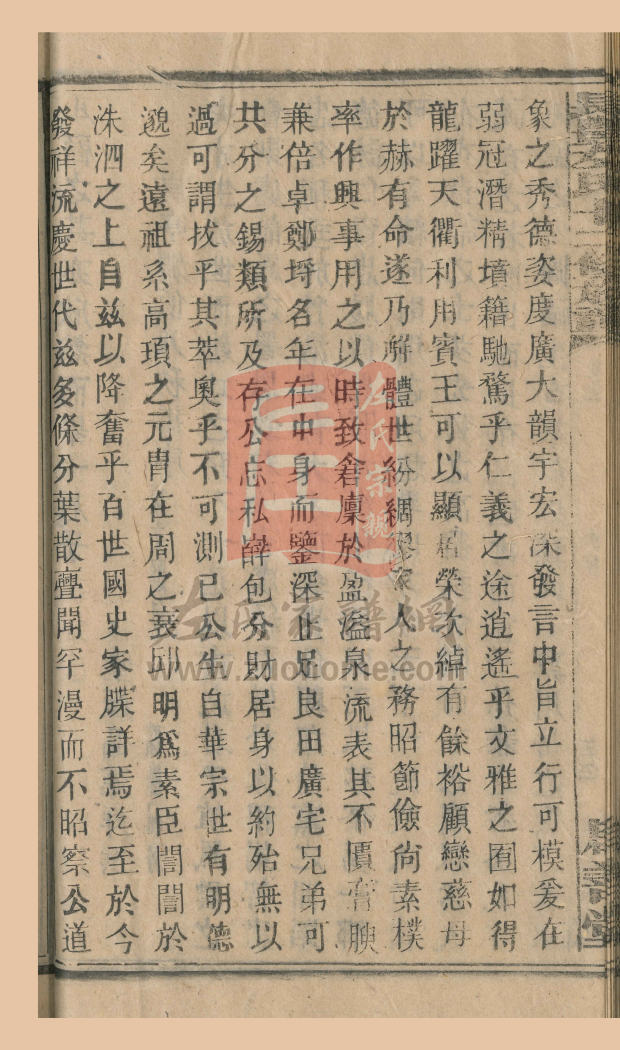 象之秀德姿度廣大韻宇宏深發言中旨立行可模爰在
弱冠潛精墳籍馳騖乎仁義之途逍遙乎文雅之囿如得
龍躍天衢利用賓王可以顯居榮次綽有餘裕顧戀慈母
於赫有命遂乃解體世紛綢繆家人之務昭節儉尚素樸
率作興事用之以時致倉廩於盈溢泉流表其不匱膏腴
兼倍卓鄭埒名年在中身而鑒深止足良田廣宅兄弟可
共分之錫類所及存公忘私辭包分財居身以約殆無以
過可謂拔乎其萃奧乎不可測已公生自華宗世有明德
邈矣遠祖系高頊之元胄在周之衰邱明爲素臣誾誾於
洙泗之上自玆以降奮乎百世國史家牒詳焉迄至於今
發祥流慶世代玆多條分葉散亹聞罕漫而不昭察公道
左氏宗親
左氏宗譜網
www.zuotome.com